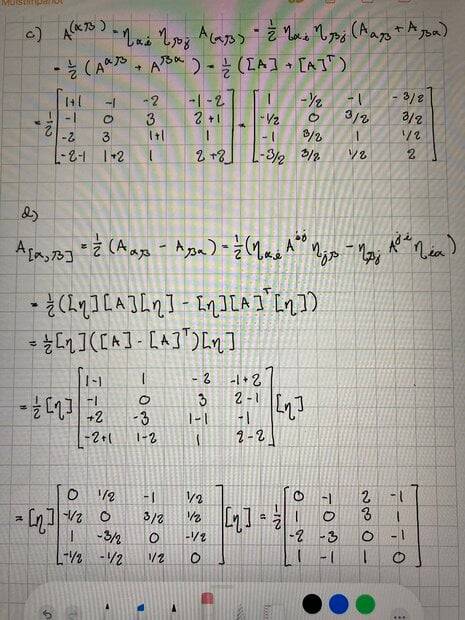 Multistimpanot
c) A^(αβ) = η_αi η_βj A_(αβ) = 1/2 η_αi η_βj (A_αβ + A_βα)
= 1/2 (A^αβ + A^βα) = 1/2 ([A] + [A]^T)
= 1/2 [1+1 -1 -2 -1-2; -1 0 3 2+1; -2 3 1+1 1; -2-1 1+2 1 2+2] = [1 -1/2 -1 -3/2; -1/2 0 3/2 3/2; -1 3/2 1 1/2; -3/2 3/2 1/2 2]
d)
A_[α,β] = 1/2 (A_αβ - A_βα) = 1/2 (η_αi A^ij η_jβ - η_βj A^ji η_iα)
= 1/2 ([η][A][η] - [η][A]^T[η])
= 1/2 [η]([A] - [A]^T)[η]
= 1/2 [η] [1-1 1 -2 -1+2; -1 0 3 2-1; +2 -3 1-1 -1; -2+1 1-2 1 2-2] [η]
= [η] [0 1/2 -1 1/2; -1/2 0 3/2 1/2; 1 -3/2 0 -1/2; -1/2 -1/2 1/2 0] [η] = 1/2 [0 -1 2 -1; 1 0 3 1; -2 -3 0 -1; 1 -1 1 0]